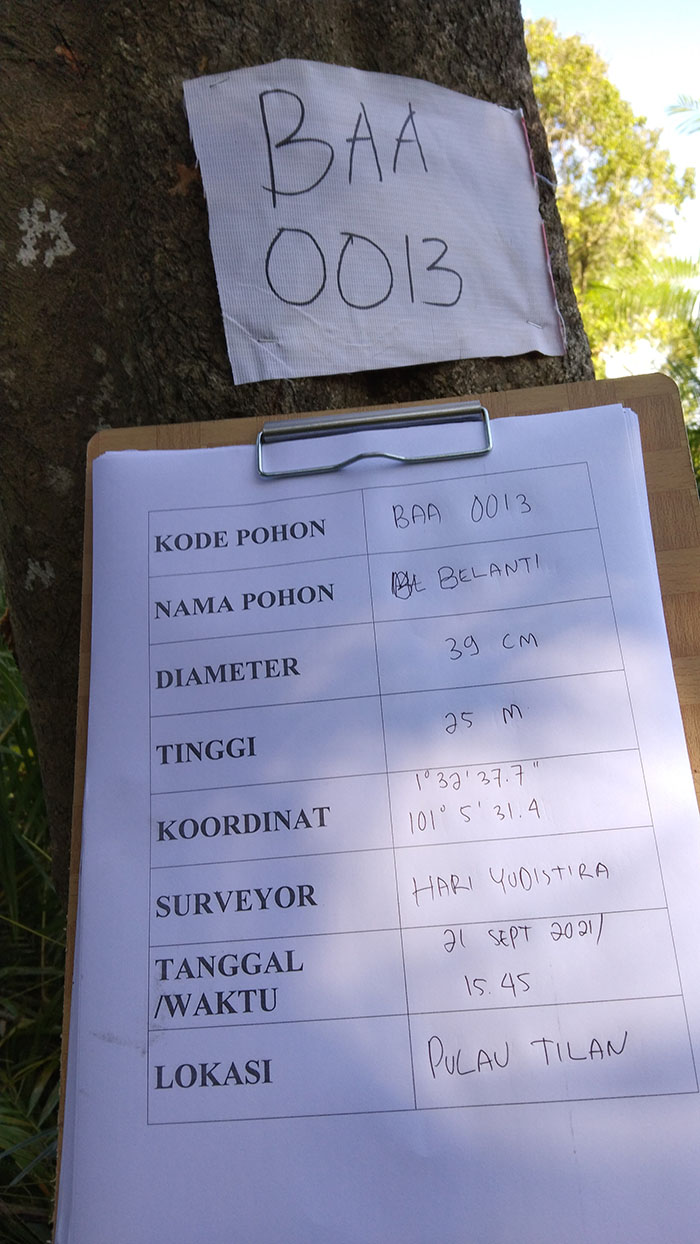 BAA
0013
KODE POHON BAA 0013
NAMA POHON BELANTI
DIAMETER 39 CM
TINGGI 25 M
KOORDINAT 1° 32' 37.7"
101° 5' 31.4
SURVEYOR HARI YUDISTIRA
TANGGAL 21 SEPT 2021/
/WAKTU 15.45
LOKASI PULAU TILAN